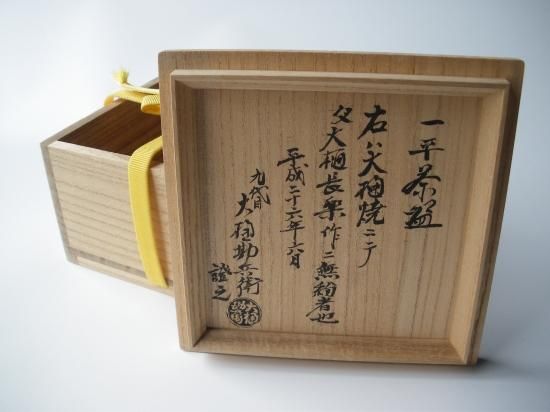 一平茶盌
右ハ大樋焼ニテ
父大樋長楽作ニ無紛者也
平成二十六年六月
九代目
大樋勘兵衛
證之